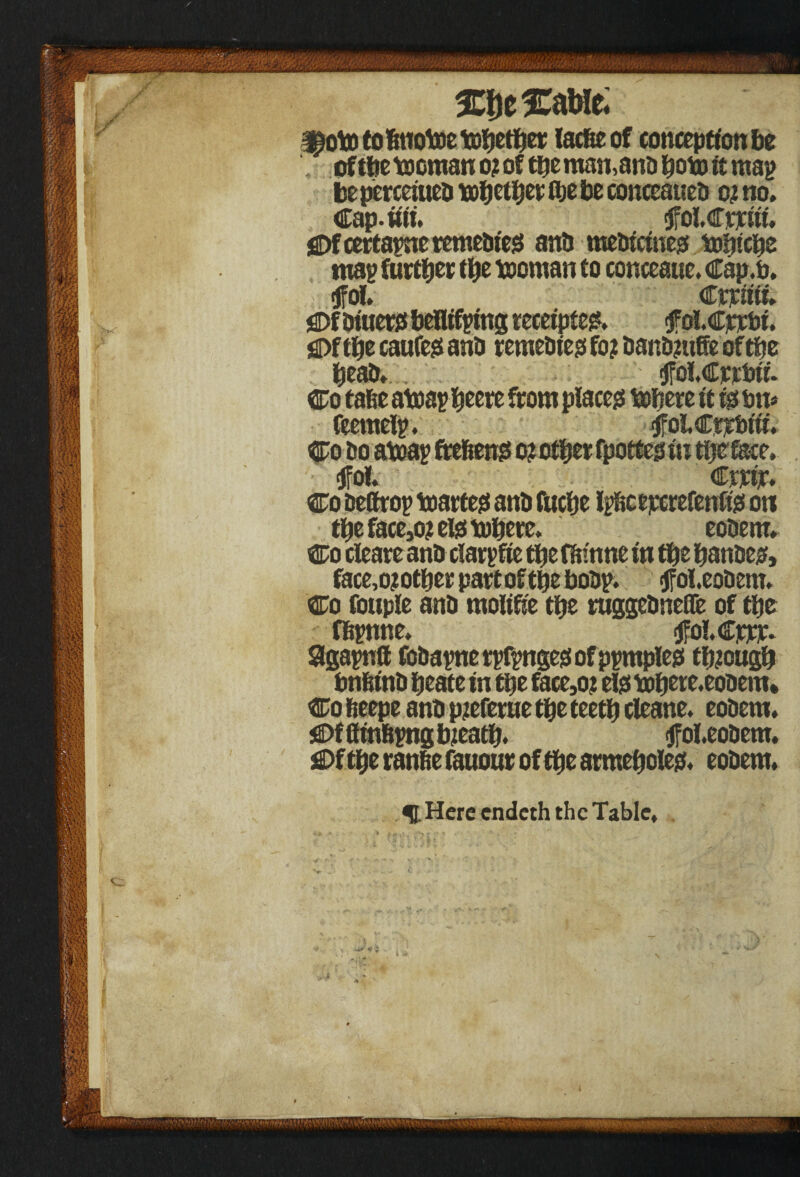 The Table.
How to knowe whether lacke of conception be
of the woman or of the man, and how it may
be perceiued whether she be conceaued or no.
Cap. iiii. Fol. Cxxiii.
Of certayne remedies and medicines whiche
may further the woman to conceaue. Cap. v.
Fol. Cxxiiii.
Of diuers bellifying receiptes. Fol. Cxxvi.
Of the causes and remedies for dandruffe of the
head. Fol. Cxxvii.
To take away heere from places where it is vn-
seemely. Fol. Cxxviii.
To do away frekens or other spottes in the face.
Fol. Cxxix.
To destroy wartes and suche lyke excresensis on
the face, or els where. eodem.
To cleare and claryfie the skinne in the handes,
face, or other part of the body. Fol. eodem.
To souple and molifie the ruggednesse of the
skynne. Fol. Cxxx.
Agaynst sodayne rysynges of pymples through
vnkind heate in the face, or els where. eodem.
To keepe and preserue the teeth cleane. eodem.
Of stinkyng breath. Fol. eodem.
Of the ranke sauour of the armeholes. eodem.
¶ Here endeth the Table.